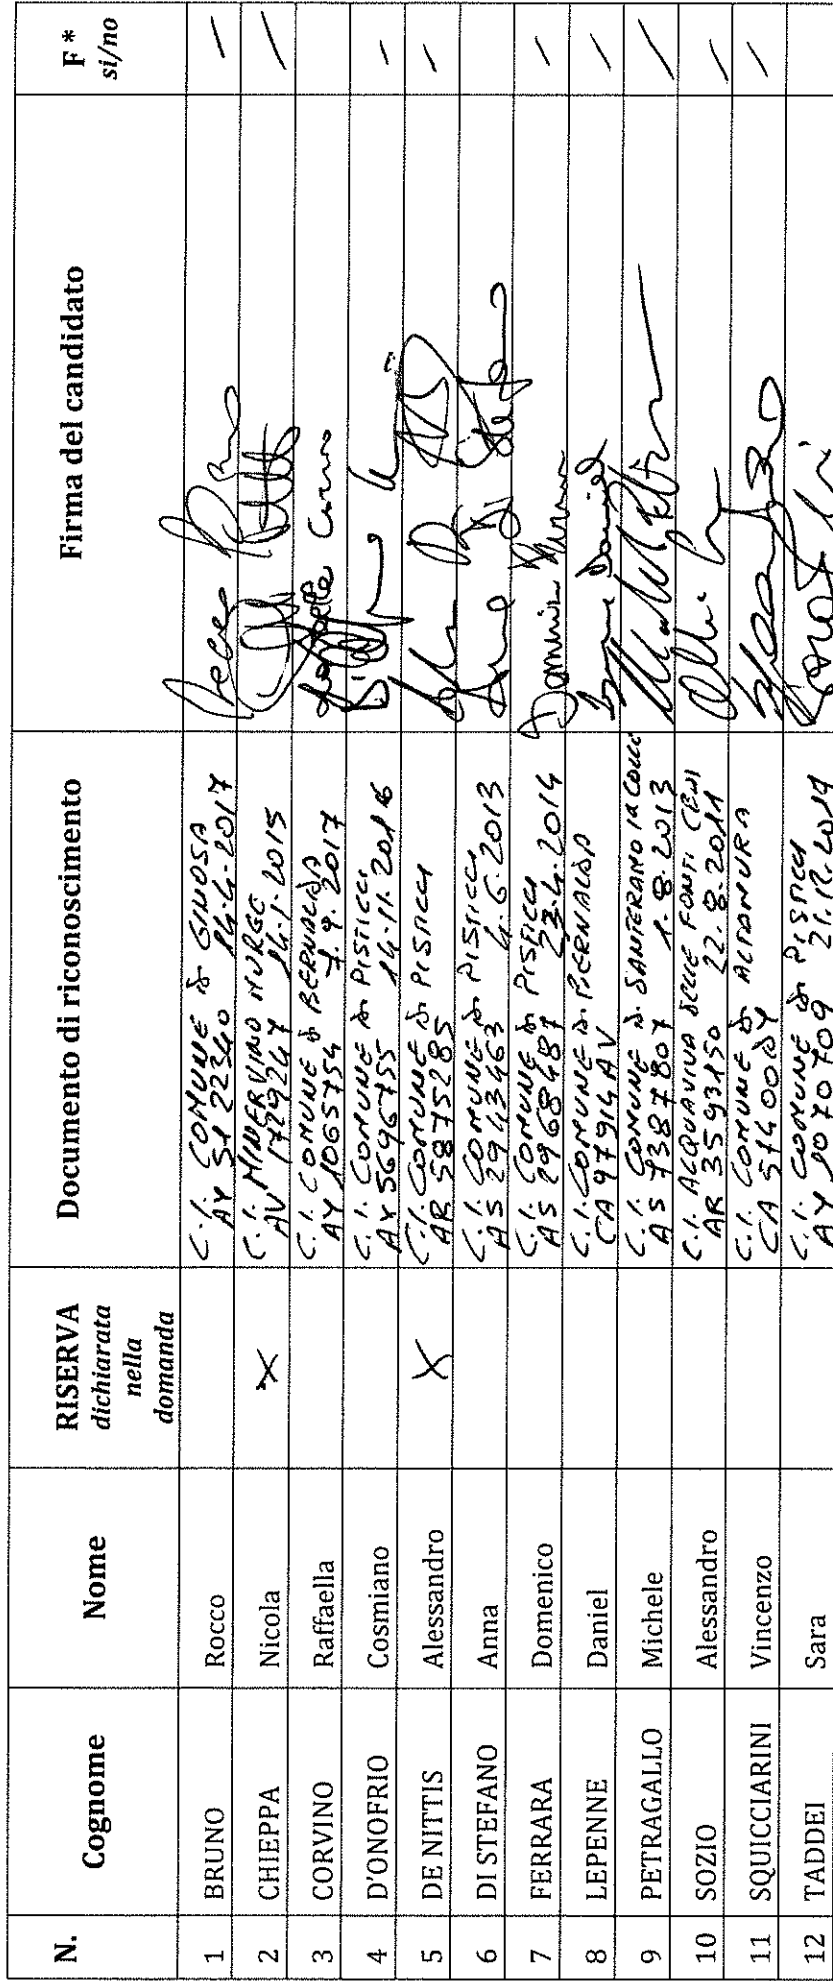 N. Cognome Nome RISERVA dichiarata nella domanda Documento di riconoscimento Firma del candidato F* si/no
1 BRUNO Rocco C.I. COMUNE di GINOSA
AY 5122340 14-4-2017
2 CHIEPPA Nicola X C.I. MINERVINO MURGE
AV 1729247 14-1-2015
3 CORVINO Raffaella C.I. COMUNE di BERNALDA
AY 1065754 7.9.2017
4 D'ONOFRIO Cosmiano C.I. COMUNE di PISTICCI
AX 5696755 14-11-2016
5 DE NITTIS Alessandro X C.I. COMUNE di PISTICCI
AR 5875285
6 DI STEFANO Anna C.I. COMUNE di PISTICCI
AS 2943463 4-6-2013
7 FERRARA Domenico C.I. COMUNE di PISTICCI
AS 2968487 23-4-2014
8 LEPENNE Daniel C.I. COMUNE di BERNALDA
CA 97914AV
9 PETRAGALLO Michele C.I. COMUNE di SANTERAMO IN COLLE
AS 7387807 1-8-2013
10 SOZIO Alessandro C.I. ACQUAVIVA DELLE FONTI
AR 3593150 22-8-2011
11 SQUICCIARINI Vincenzo C.I. COMUNE di ALTAMURA
CA
12 TADDEI Sara C.I. COMUNE di PISTICCI
AY 1070709